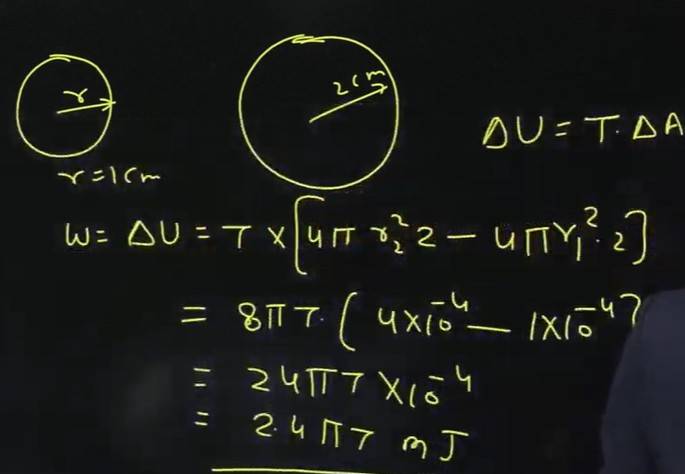 r
2cm
r=1cm
ΔU = T·ΔA
W = ΔU = T × [4π r₂² 2 − 4π r₁²·2]
= 8πT·(4×10⁻⁴ − 1×10⁻⁴)
= 24πT×10⁻⁴
= 2.4πT mJ